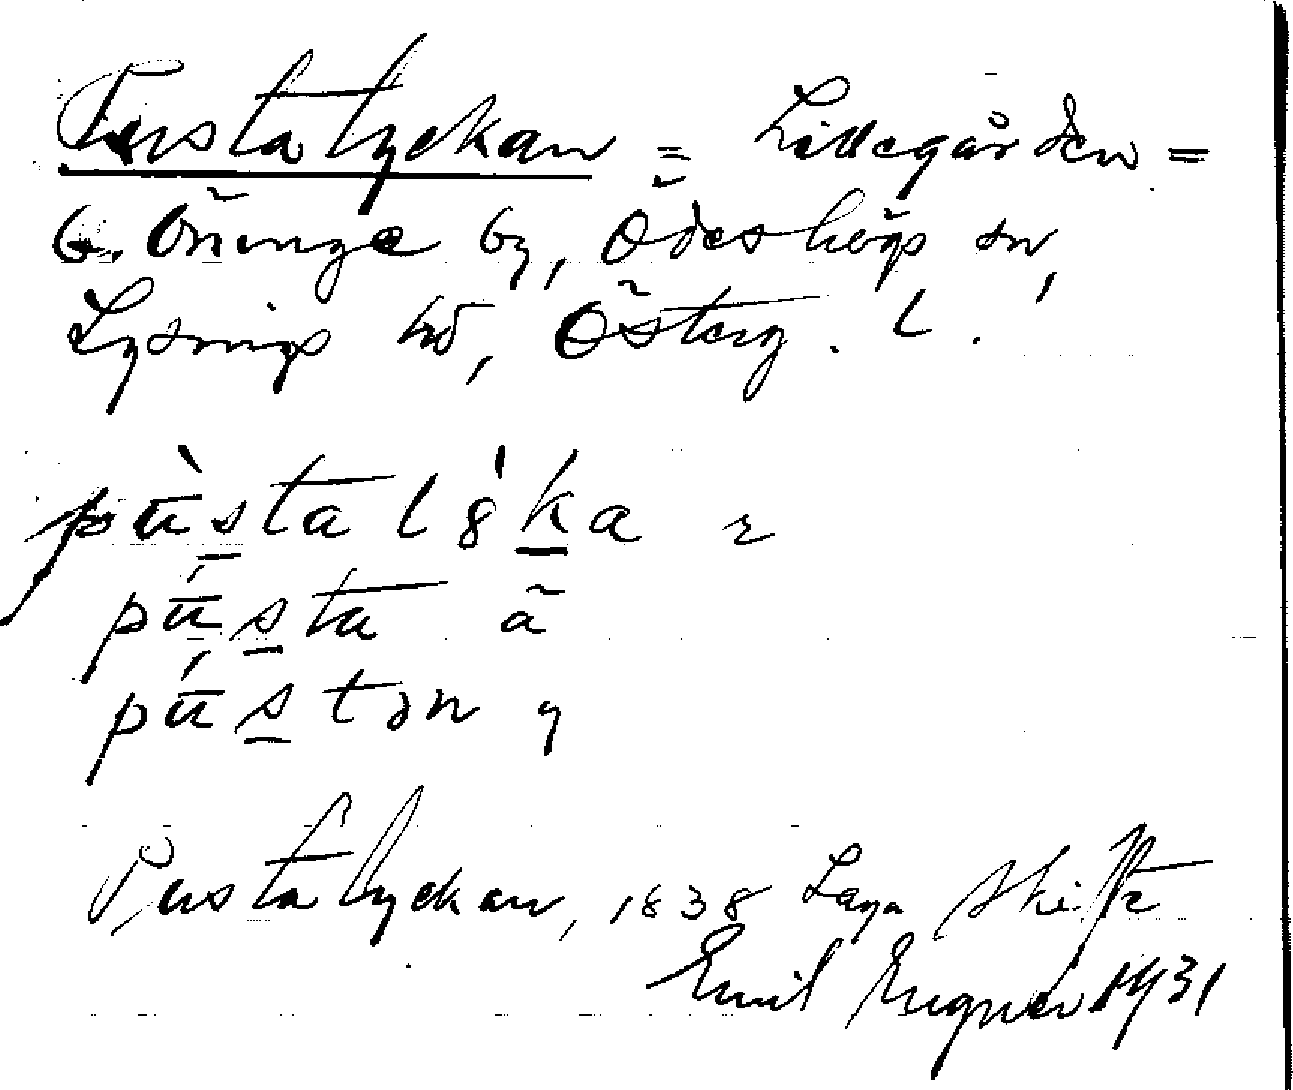 Pustalyckan = Lillegården =
G. Öninge by, Ödeshögs sn,
Lysings hd, Österg. l.
pūstalȣka r
pūsta ã
pūstən y
Pustalyckan, 1838 Laga skifte
Emil 1931